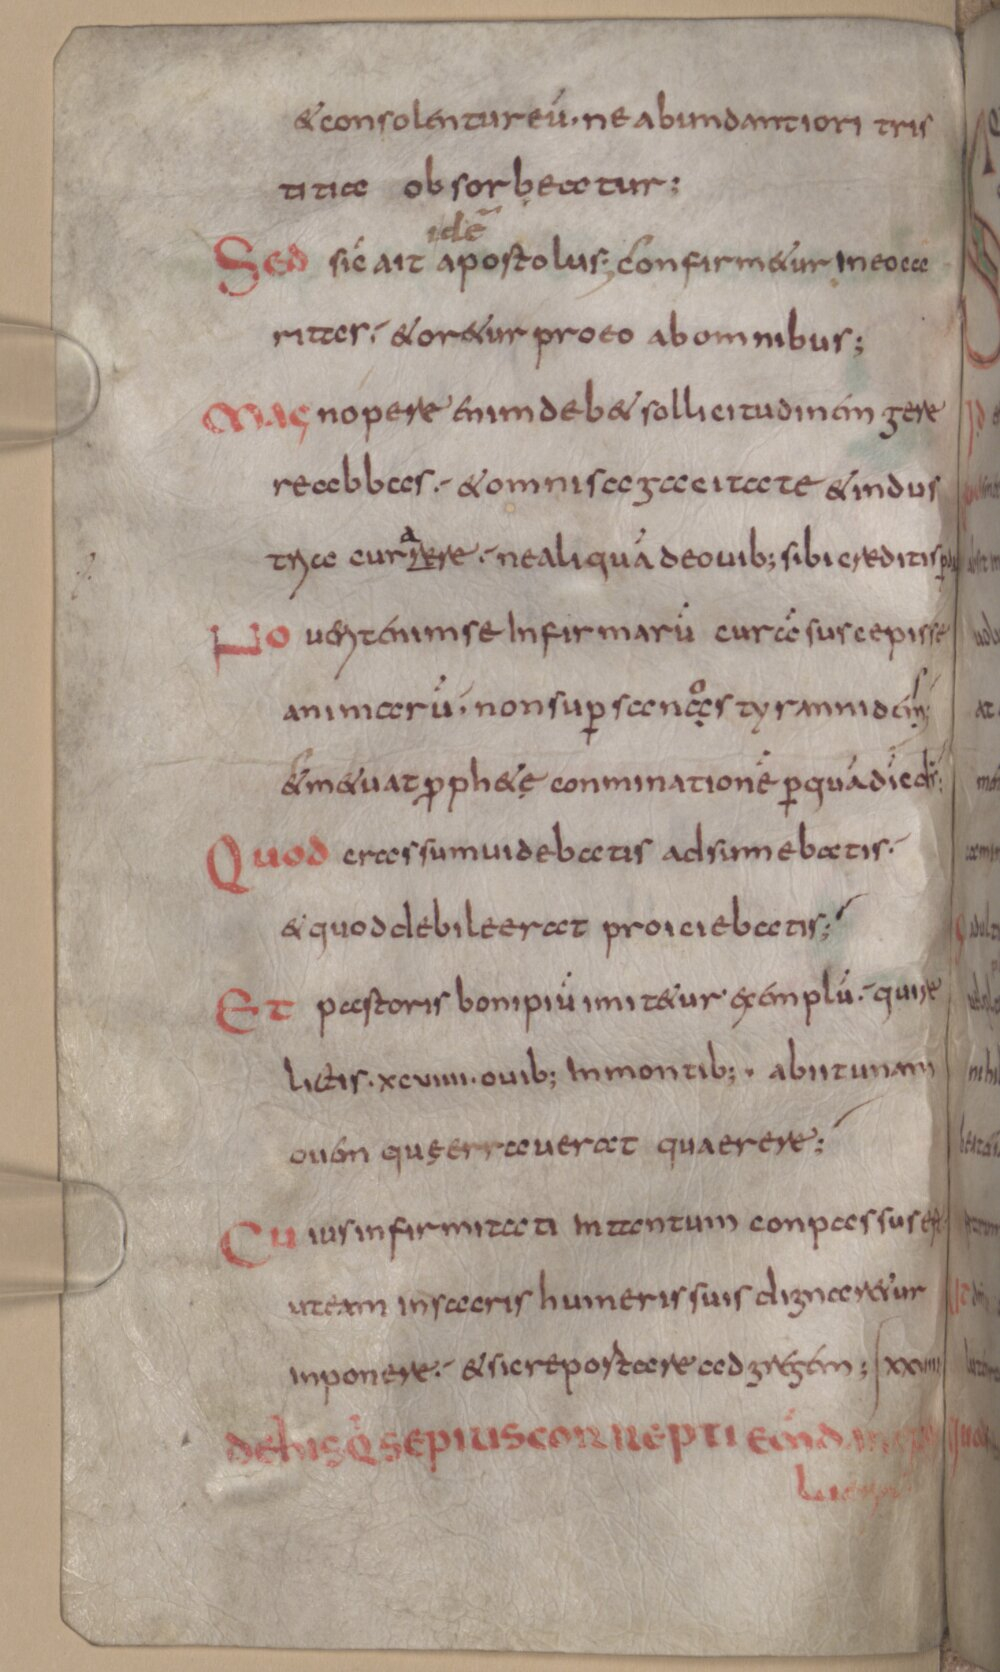 &consolentureū. ne abundantiori tris
titiae obsorbeatur;
idē
Sed sic̄ ait apostolus; confirm&ur in eo ca
ritas. &or&ur pro eo ab omnibus;
Magnopere enim deb& sollicitudinem gere
re abbas. &omni sagacitate &indus
tria currere. ne aliquā de ovib; sibi creditis
Noverit enim se infirmarū curā suscepisse
animarū. non sup sanas tyrannidem;
&m&uat pph&ę conminationē p quā dic̄ ds̄;
Quod crassum videbatis adsumebatis.
&quod debile erat proiciebatis;
Et pastoris boni piū imit&ur exemplū. qui re
lictis. xcviiii. ovib; in montib;. abiit unam
ovem quę erraverat quaerere;
Cuius infirmitati in tantum conpassus est
ut eam in sacris humeris suis dignar&ur
inponere. &sic repostare ad gregem; xxviiii
de his q̄ sepius correpti